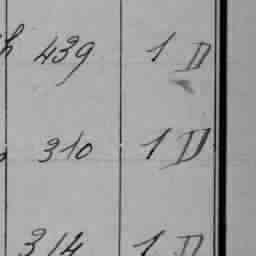 h 439 1 D
310 1 D
314 1 D